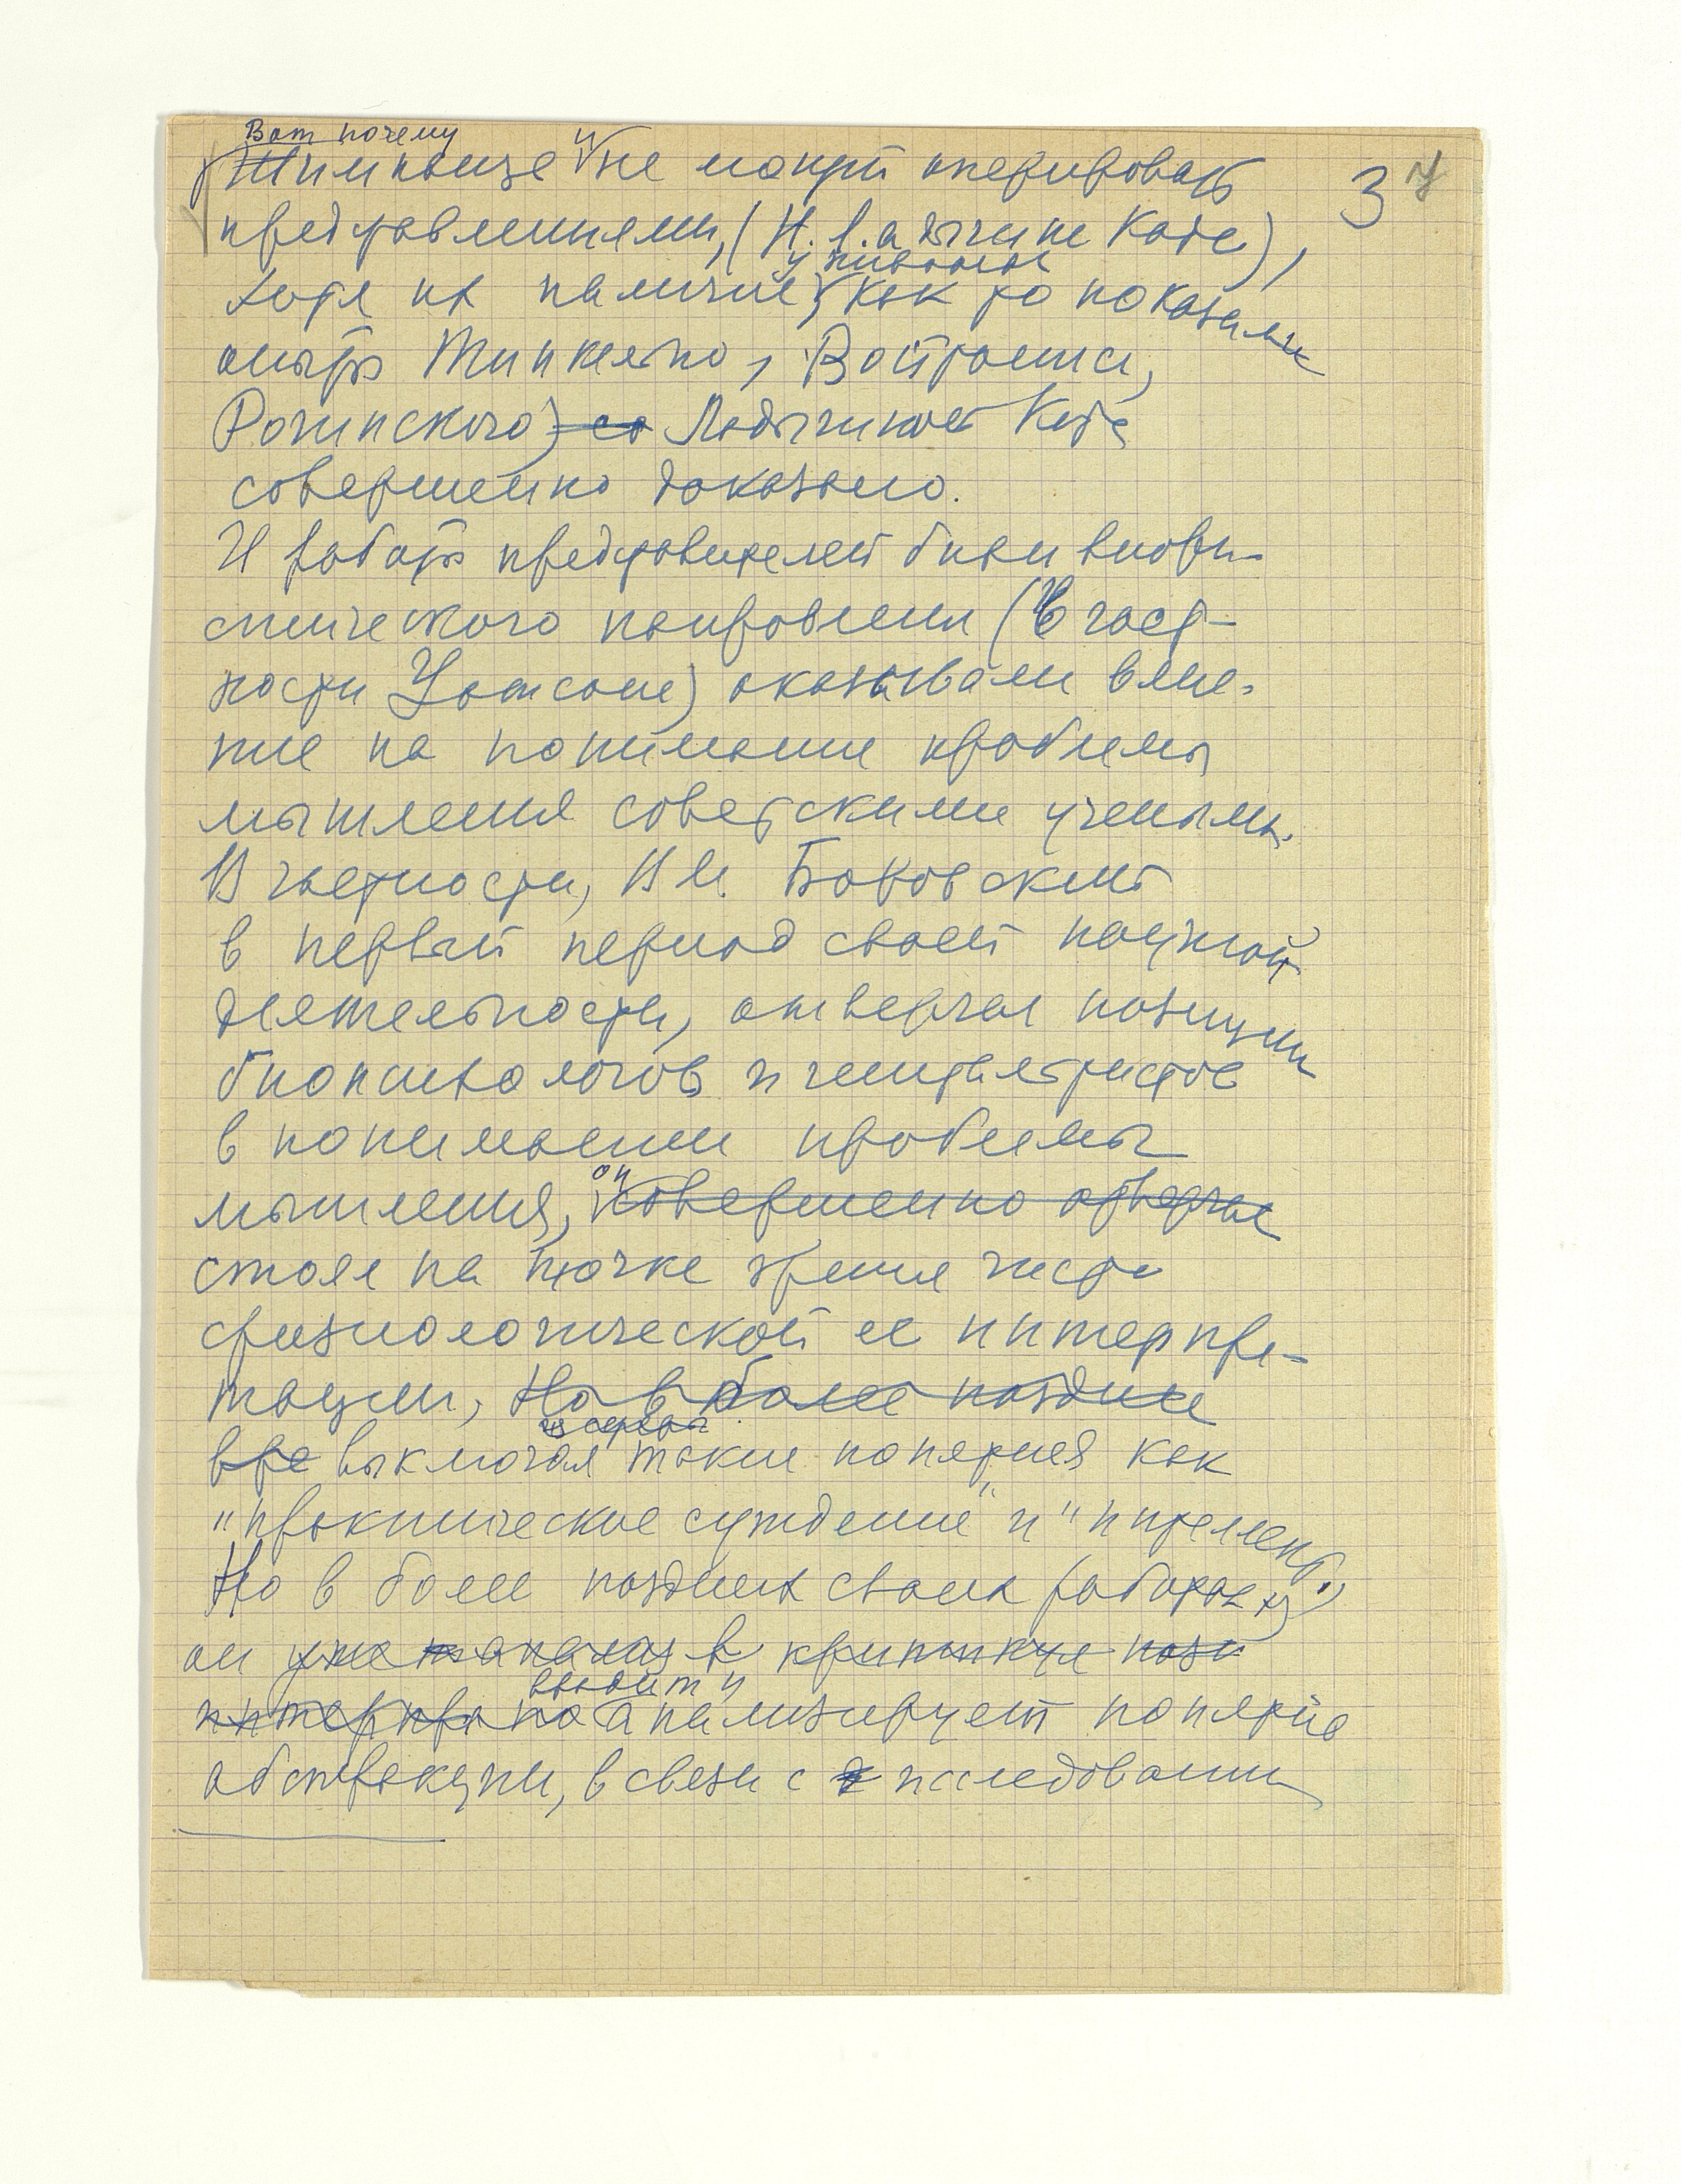 3 7
Вот почему и
Шимпанзе не могут оперировать
представлениями, (Н. Н. Ладыгина Котс),
у животных
хотя их наличие, как то показали
опыты Тинкльпо, Войтониса,
Рогинского, со Ладыгиной Котс
совершенно доказано.
И работы представителей бихевиори-
стического направления (в част-
ности Уотсона) оказывали влия-
ние на понимание проблемы
мышления советскими учеными.
В частности, В. М. Боровский
в первый период своей научной
деятельности, отвергая позиции
биопсихологов и гештальтистов
в понимании проблемы
он
мышления, совершенно отвергал
стоял на точке зрения чисто
физиологической ее интерпре-
тации, Но в более поздние
вре выключая такие понятия как
"практическое суждение" и "интеллект".
Но в более поздних своих работах
он уже анализ в критикуя пози
вводит и
интерпре но анализирует понятие
абстракции, в связи с исследованиями